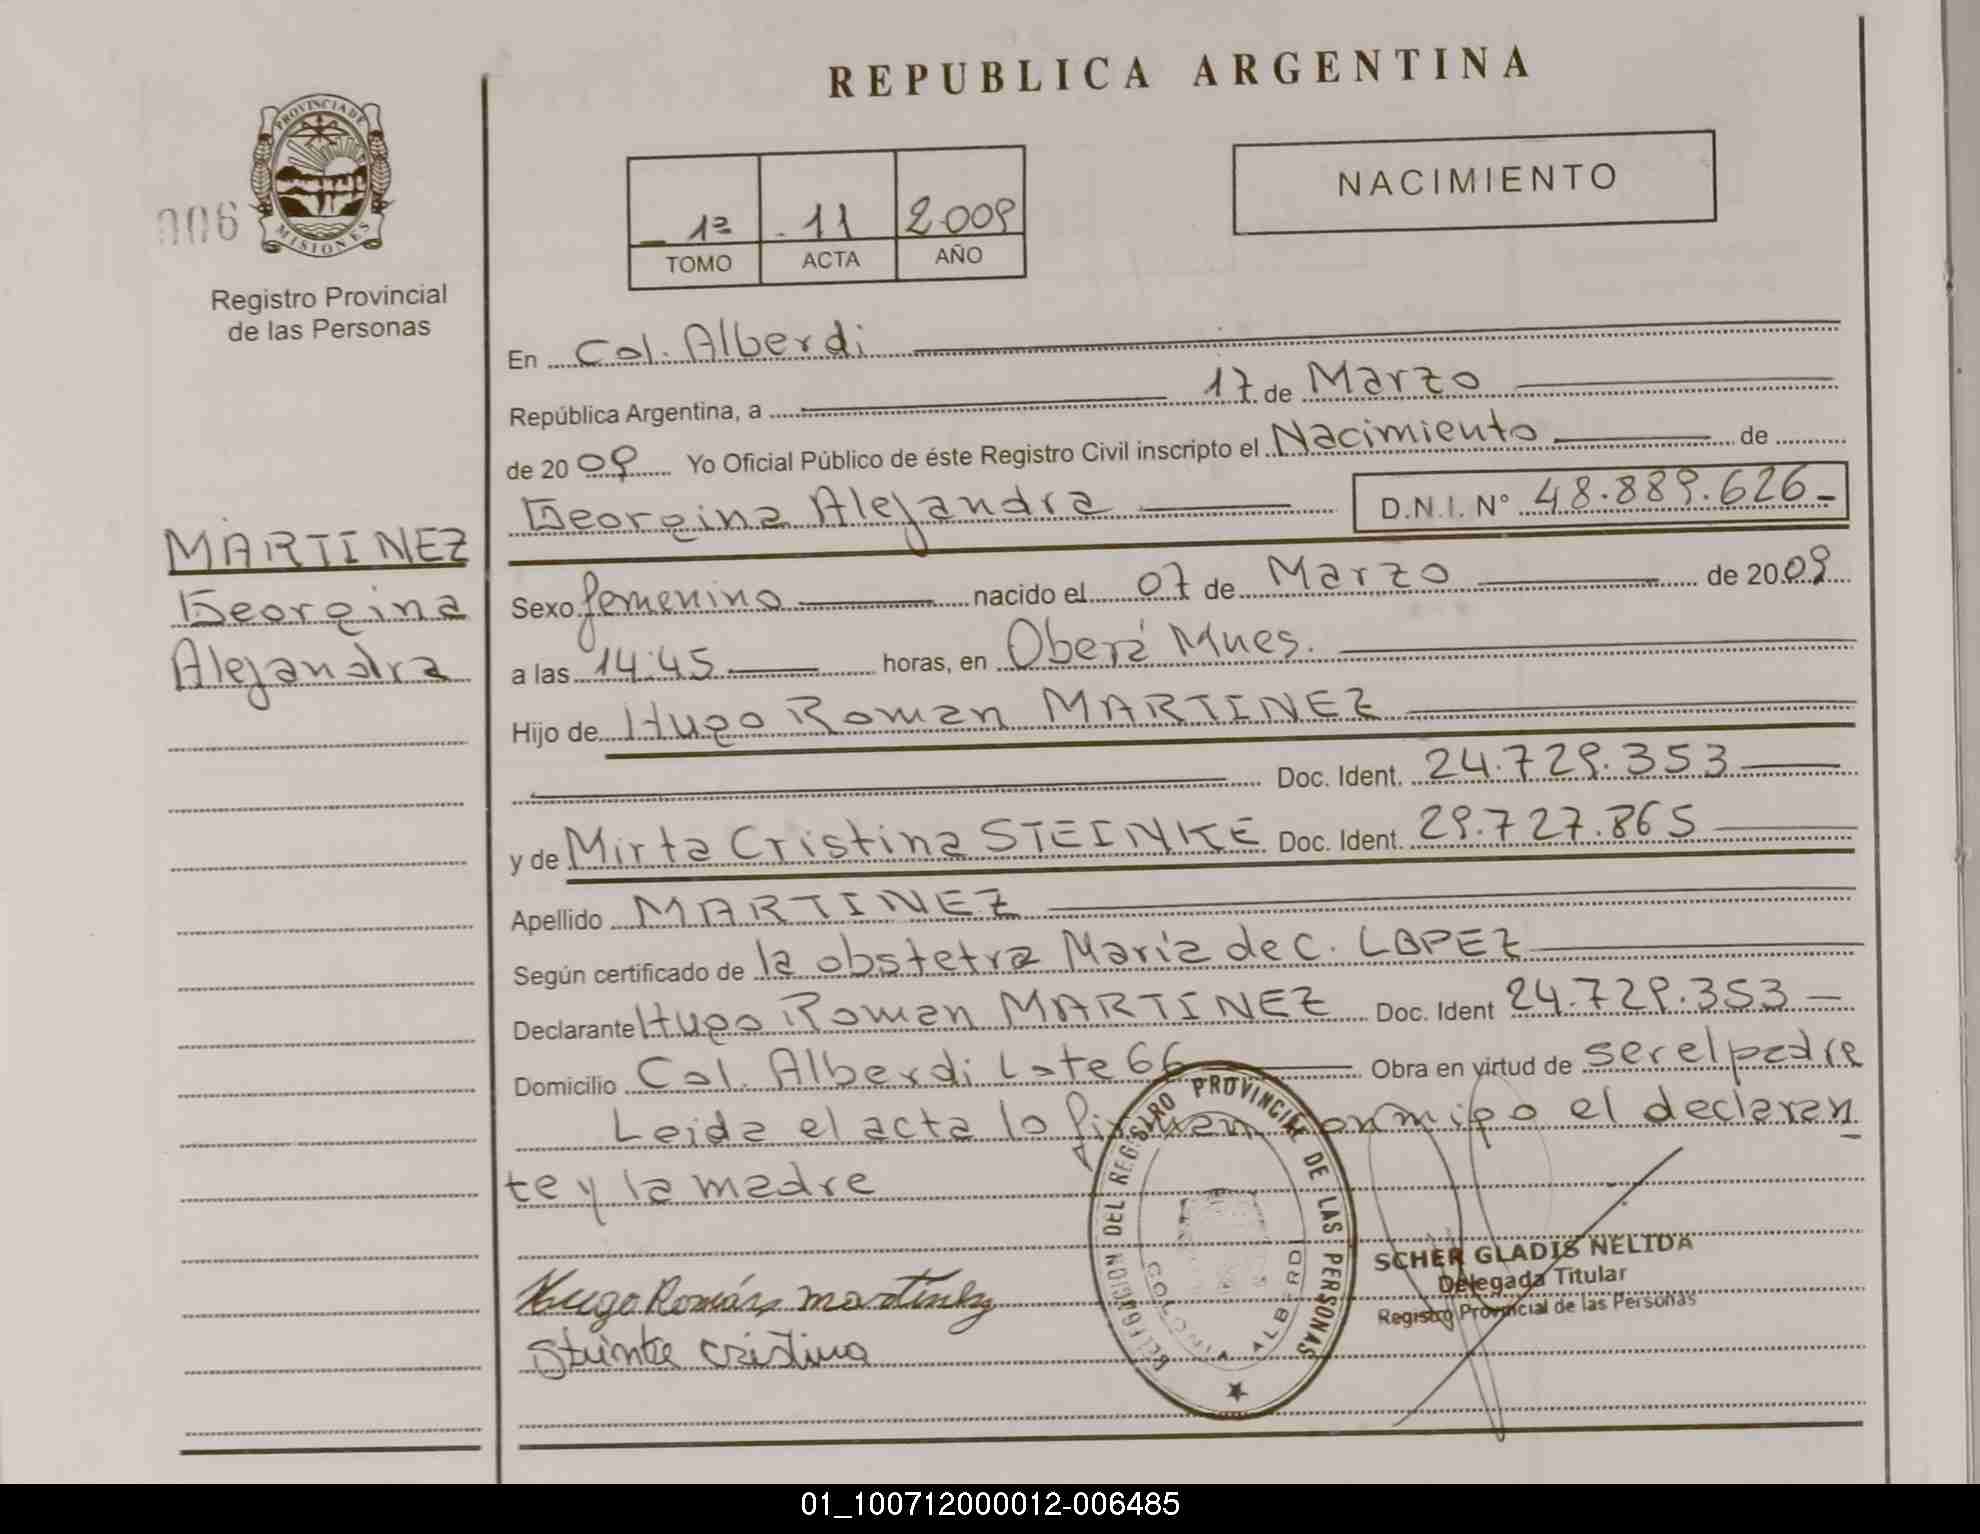 REPUBLICA ARGENTINA
PROVINCIA DE MISIONES
006
Registro Provincial
de las Personas
1º 11 2009
TOMO ACTA AÑO
NACIMIENTO
En Col. Alberdi
República Argentina, a 17 de Marzo
de 2009 Yo Oficial Público de éste Registro Civil inscripto el Nacimiento de
Georgina Alejandra D.N.I. Nº 48.889.626
MARTINEZ
Georgina
Alejandra
Sexo femenino nacido el 07 de Marzo de 2009
a las 14:45 horas, en Oberá Mnes.
Hijo de Hugo Roman MARTINEZ
Doc. Ident. 24.729.353
y de Mirta Cristina STEINKE Doc. Ident. 29.727.865
Apellido MARTINEZ
Según certificado de la obstetra María de C. LOPEZ
Declarante Hugo Roman MARTINEZ Doc. Ident 24.729.353
Domicilio Col. Alberdi Lote 66 Obra en virtud de ser el padre
Leida el acta lo firman conmigo el declaran
te y la madre
DELEGACION DEL REGISTRO PROVINCIAL DE LAS PERSONAS
COLONIA ALBERDI
SCHER GLADIS NELIDA
Delegada Titular
Registro Provincial de las Personas
Hugo Román Martínez
Steinke Cristina
01_100712000012-006485